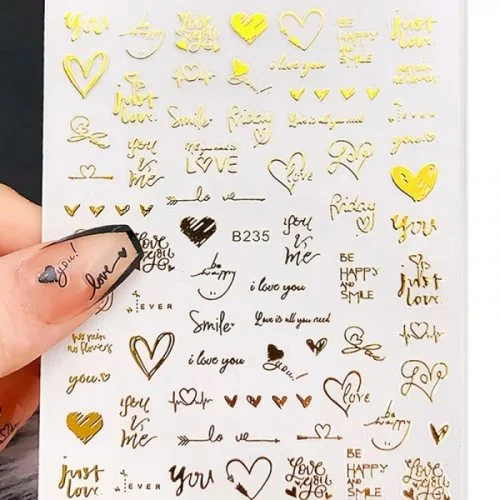 you
be
happy
Love
you
BE
HAPPY
AND
SMILE
you
just
love.
i love you
no rain
no flowers
Smile
Friday
Love is all you need
you
is
me
All you need is
LOVE
Love
you.
lo ve
Friday
you
B235
you
is
me
Love
you
be
happy
BE
HAPPY
AND
SMILE
just
love.
you!
love
i love you
EVER
Smile
Love is all you need
no rain
no flowers
i love you
you!
you.
Love
Love
you
is
me
be
happy
lo ve
just
love
you
Love
you
BE
HAPPY
AND
SMILE
you
EVER